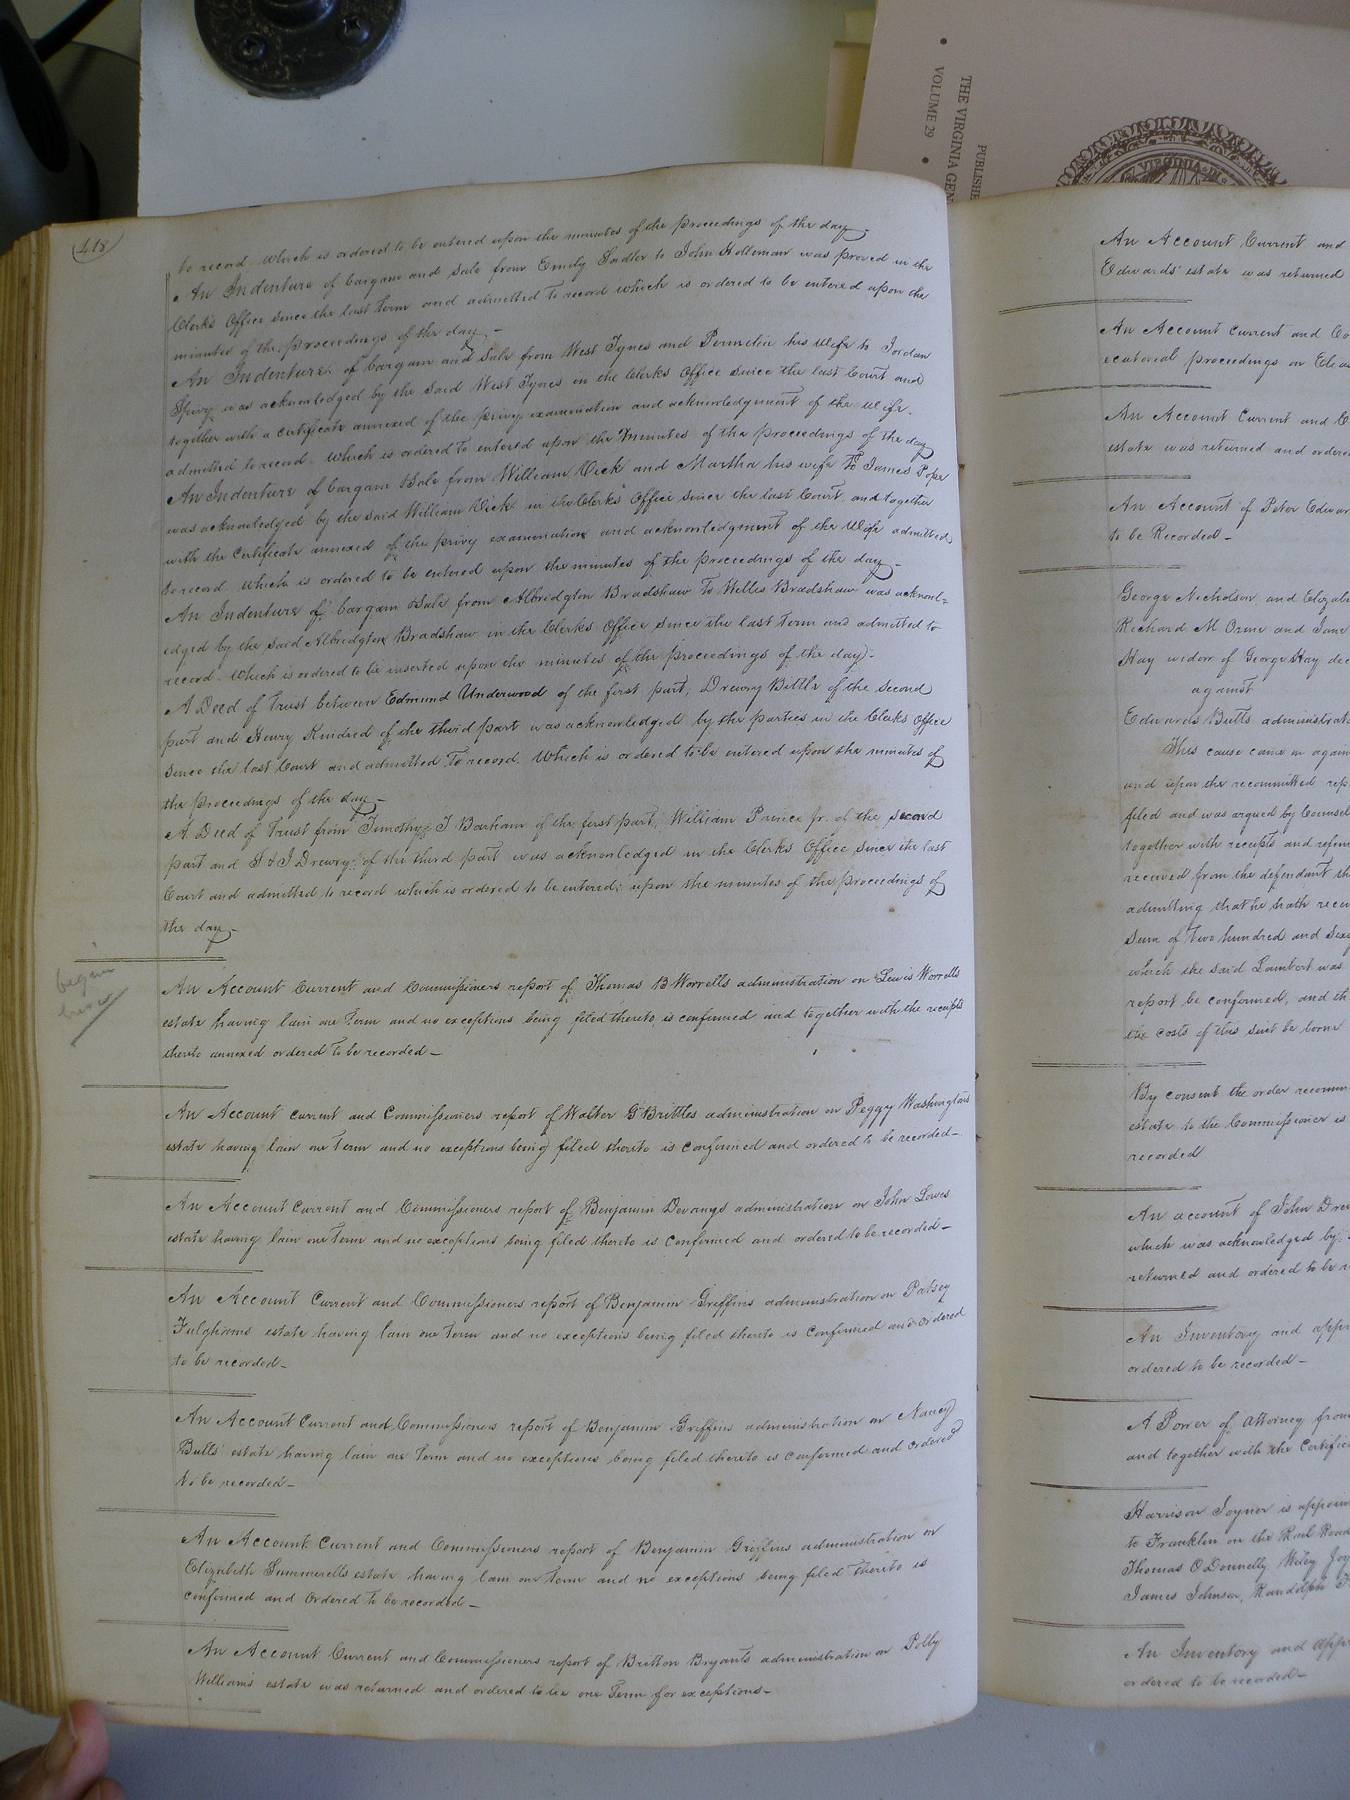 THE VIRGINIA GEN
VOLUME 29
PUBLISHE
VIRGINIA
418
to record which is ordered to be entered upon the minutes of the proceedings of the day.
An Indenture of bargain and Sale from Emily Sadler to John Holleman was proved in the
Clerk's Office since the last Term and admitted to record which is ordered to be entered upon the
minutes of the proceedings of the day —
An Indenture of bargain and Sale from West Tynes and his Wife to Jordan
Spivy was acknowledged by the said West Tynes in the Clerks Office since the last Court and
together with a certificate annexed of the privy examination and acknowledgment of the wife.
admitted to record. which is ordered to entered upon the Minutes of the proceedings of the day
An Indenture of bargain Sale from William Vick and Martha his wife To James Pope
was acknowledged by the said William Vick in the Clerks Office since the last Court, and together
with the Certificate annexed of the privy examination and acknowledgment of the Wife admitted
to record. which is ordered to be entered upon the minutes of the proceedings of the day —
An Indenture of bargain Sale from Albridgton Bradshaw To Willis Bradshaw was acknowl-
edged by the said Albridgton Bradshaw in the Clerks Office since the last Term and admitted to
record. which is ordered to be inserted upon the minutes of the proceedings of the day -
A Deed of Trust between Edmund Underwood of the first part, Drewry Bittle of the second
part and Henry Kindred of the third part was acknowledged by the parties in the Clerks Office
since the last Court and admitted To record. Which is ordered to be entered upon the minutes of
the proceedings of the day —
A Deed of Trust from Timothy T Barham of the first part, William Prince Jr. of the second
part and T & J Drewry of the third part was acknowledged in the Clerks Office since the last
Court and admitted to record which is ordered to be entered upon the minutes of the proceedings of
the day —
begin
here
An Account Current and Commissioners report of Thomas B Worrells administration on Lewis Worrells
estate having lain one Term and no exceptions being filed thereto, is confirmed and together with the receipts
thereto annexed ordered to be recorded —
An Account current and Commissioners report of Walter G Brittles administration on Peggy Washingtons
estate having lain one Term and no exceptions being filed thereto is confirmed and ordered to be recorded —
An Account Current and Commissioners report of Benjamin Devanys administration on John Lowes
estate having lain one Term and no exceptions being filed thereto is confirmed and ordered to be recorded —
An Account Current and Commissioners report of Benjamin Griffins administration on Patsey
Fulghams estate having lain one Term and no exceptions being filed thereto is confirmed and ordered
to be recorded —
An Account Current and Commissioners report of Benjamin Griffins administration on Nancy
Butts' estate having lain one Term and no exceptions being filed thereto is confirmed and ordered
to be recorded —
An Account Current and Commissioners report of Benjamin Griffins administration on
Elizabeth Summerells estate having lain one Term and no exceptions being filed thereto is
confirmed and Ordered to be recorded —
An Account Current and Commissioners report of Britton Bryants administration on Polly
Williams estate was returned and ordered to lie one Term for exceptions —
An Account Current and
Edwards' estate was returned
An Account Current and Co
ecutorial proceedings on
An Account Current and
estate was returned and ordere
An Account of Peter Edwar
to be Recorded —
George Nicholson and Elizabe
Richard M Orme and Jane
Hay widow of George Hay dec
against
Edwards Butts administrat
This cause came on again
and upon the recommitted rep
filed and was argued by Counsel
together with receipts and
received from the defendant th
admitting that he hath rece
Sum of Two hundred and
which the said Lambert was
report be confirmed, and th
the costs of this suit be borne
By consent the order recomm
estate to the Commissioner is
recorded
An account of John Drew
which was acknowledged by
returned and ordered to be r
An Inventory and appr
ordered to be recorded —
A Power of Attorney from
and together with the Certific
Harrison Joyner is appoin
to Franklin on the Rail Road
Thomas O Donnelly Wiley Joy
James Johnson, Randolph
An Inventory and appr
ordered to be recorded —